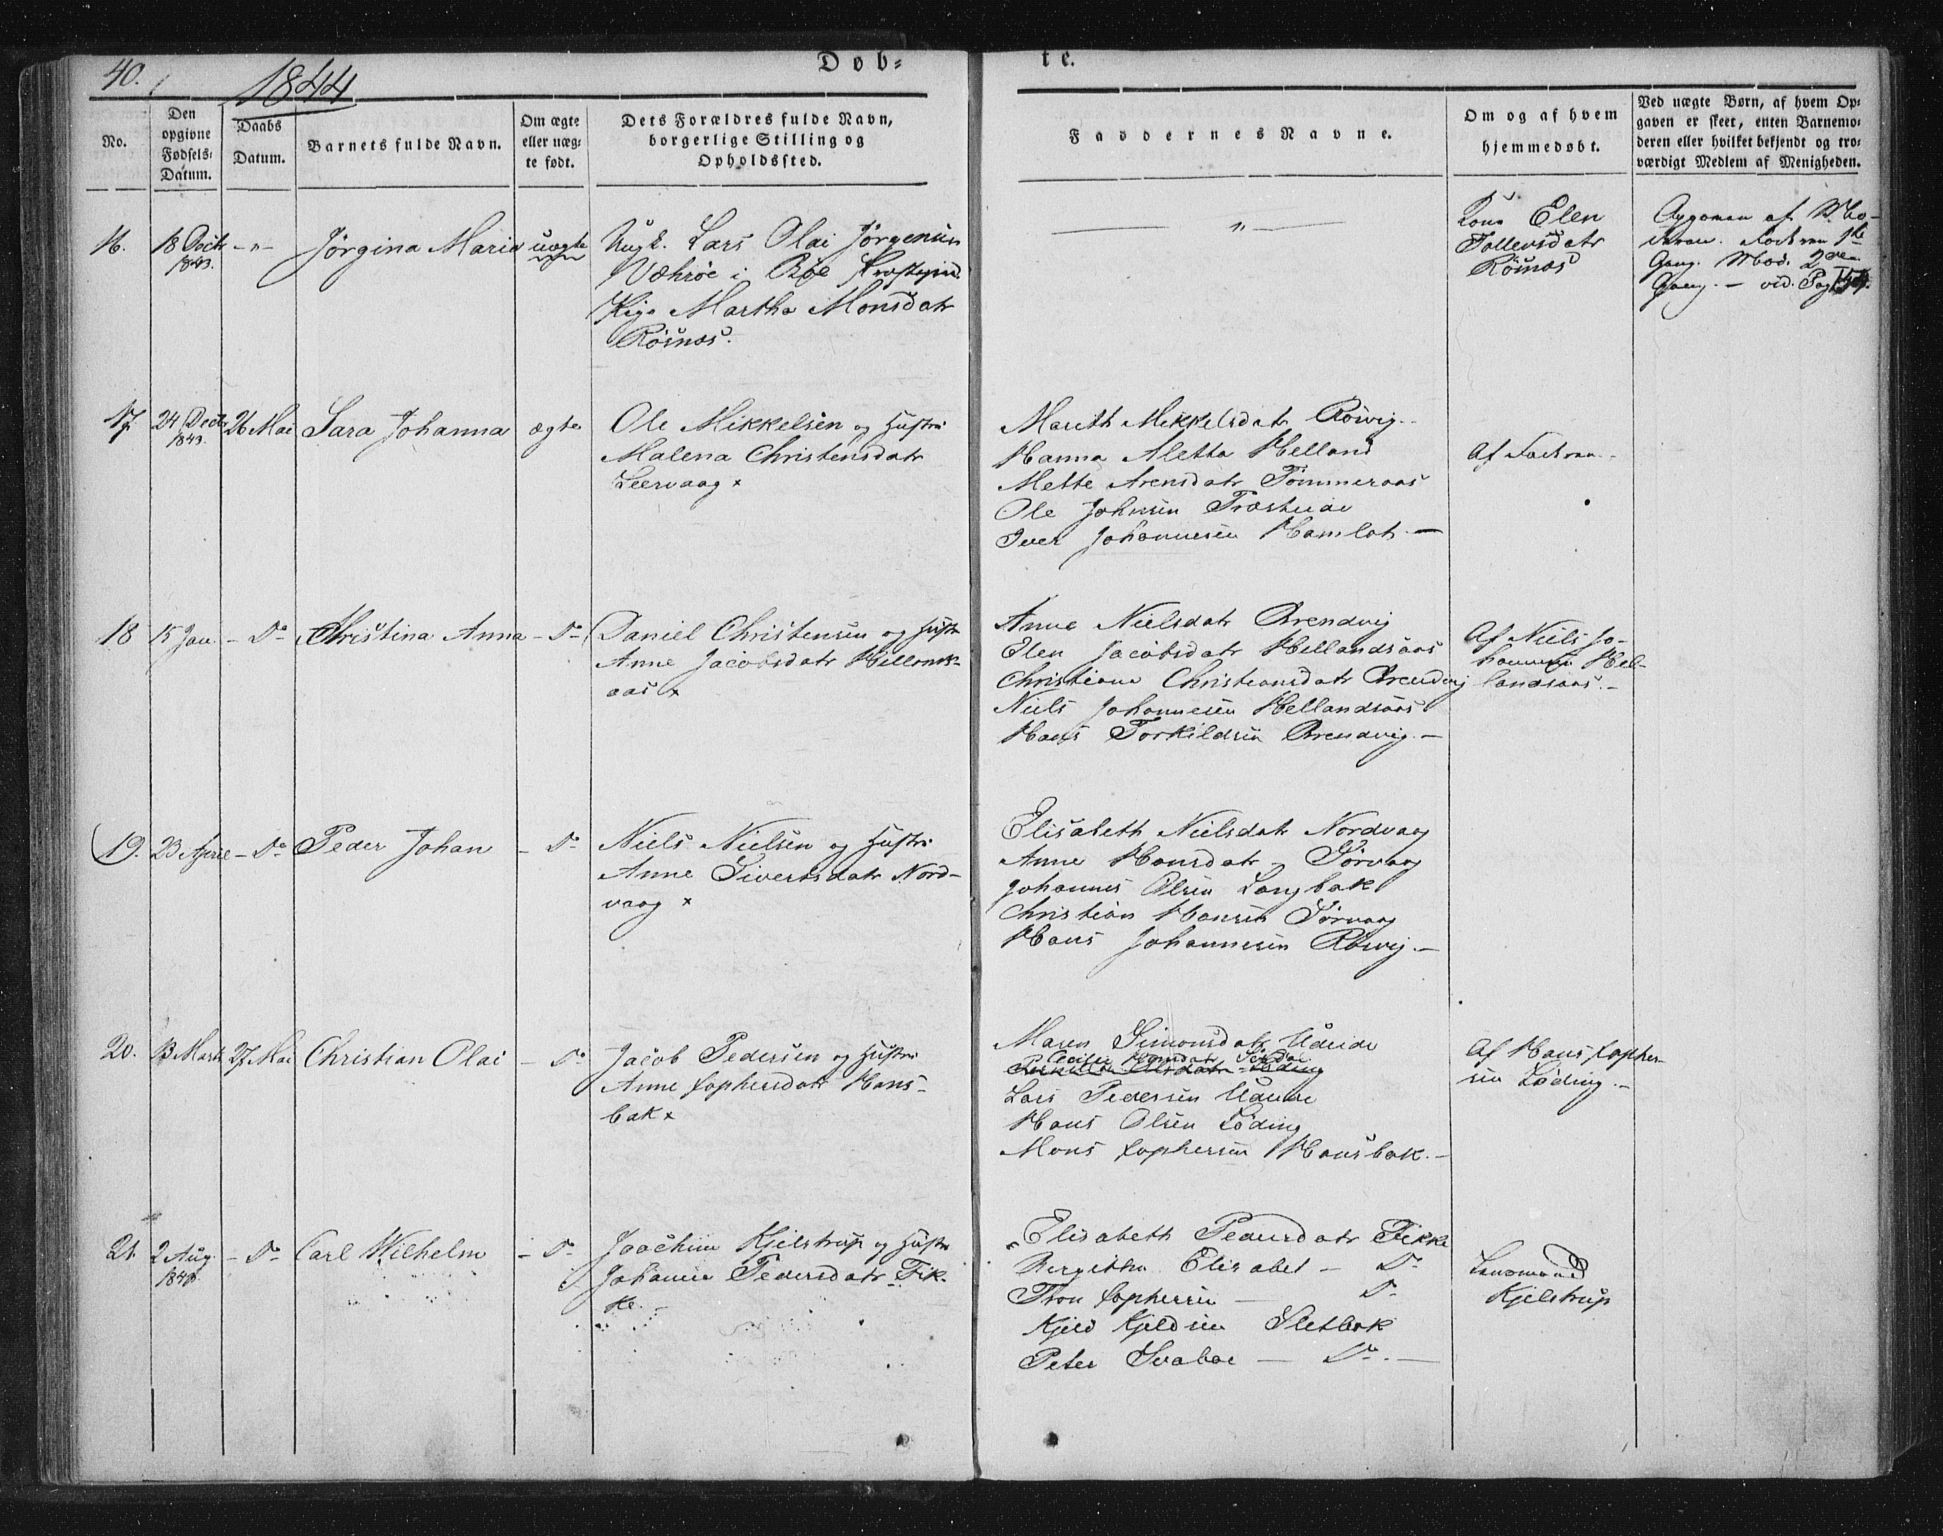 40.
1844
Døb-
te.
No.
Den opgivne Fødsels-Datum.
Daabs Datum.
Barnets fulde Navn.
Om ægte eller uæg-te født.
Dets Forældres fulde Navn, borgerlige Stilling og Opholdssted.
Faddernes Navne.
Om og af hvem hjemmedøbt.
Ved uægte Børn, af hvem Op-gaven er skeet, enten Barnemo-deren eller hvilket bekjendt og tro-værdigt Medlem af Menigheden.
16.
18 Decbr 1843.
-"-
Jørgina Maria
uægte
Ungk. Lars Olai Jørgensen
i Bøe
Pige Martha Monsdatr
Rösnæs.
"
Kone Elen
Tollevsdatr
Rösnæs
Opgiven af Mo-
deren. Faderen 1ste
Gang. Mod. 2den
Gang. - vid. Pag
17.
24 Decbr 1843.
26 Mai
Sara Johanna
ægte
Ole Mikkelsen og Hustru
Malena Christensdatr
Leervaag x
Marith Mikkelsdatr Rösvig.
Hanna Aletta Helland
Mette Arensdatr Tömmeraas
Ole Johnsen
Iver Johannesen Hamlot. -
Af Faderen.
18
15 Jan
- Do
Christina Anna
- Do
Daniel Christensen og Hustr
Anne Jacobsdatr Hellands-
aas x
Anne Nielsdatr Brendvig
Elen Jacobsdatr Hellandsaas
Christiane Christiansdatr Brendvig
Niels Johannesen Hellandsaas
Hans Torkildsen Brendvig. -
Af Niels Jo-
hannesen Hel-
landsaas. -
19.
23 April
- Do
Peder Johan
- Do
Niels Nielsen og Hustru
Anne Sivertsdatr Nord-
vaag x
Elisabeth Nielsdatr Nordvaag
Anne Hansdatr Sörvaag
Johannes Olsen Langbak
Christian Hansen Sörvaag
Hans Johannesen Rösvig. -
20.
13 Marts
27 Mai
Christian Olai
- Do
Jacob Pedersen og Hustru
Anne Zophersdatr Hans-
bak x
Maren Simonsdatr
Lars Pedersen
Hans Olsen Löding
Mons Zophersen Hansbak. -
Af Hans Zopher-
sen Löding. -
21
2 Aug. 1843.
- Do
Carl Wilhelm
- Do
Joachim Kjelstrup og Hustru
Johanna Pedersdatr Fik-
ke.
Elisabeth Pedersdatr Fikke
Bergitha Elisabet - Do
Tron Zophersen - Do
Kjeld Kjeldsen Sletbak
Peter Svaboe - Do. -
Lensmand
Kjelstrup